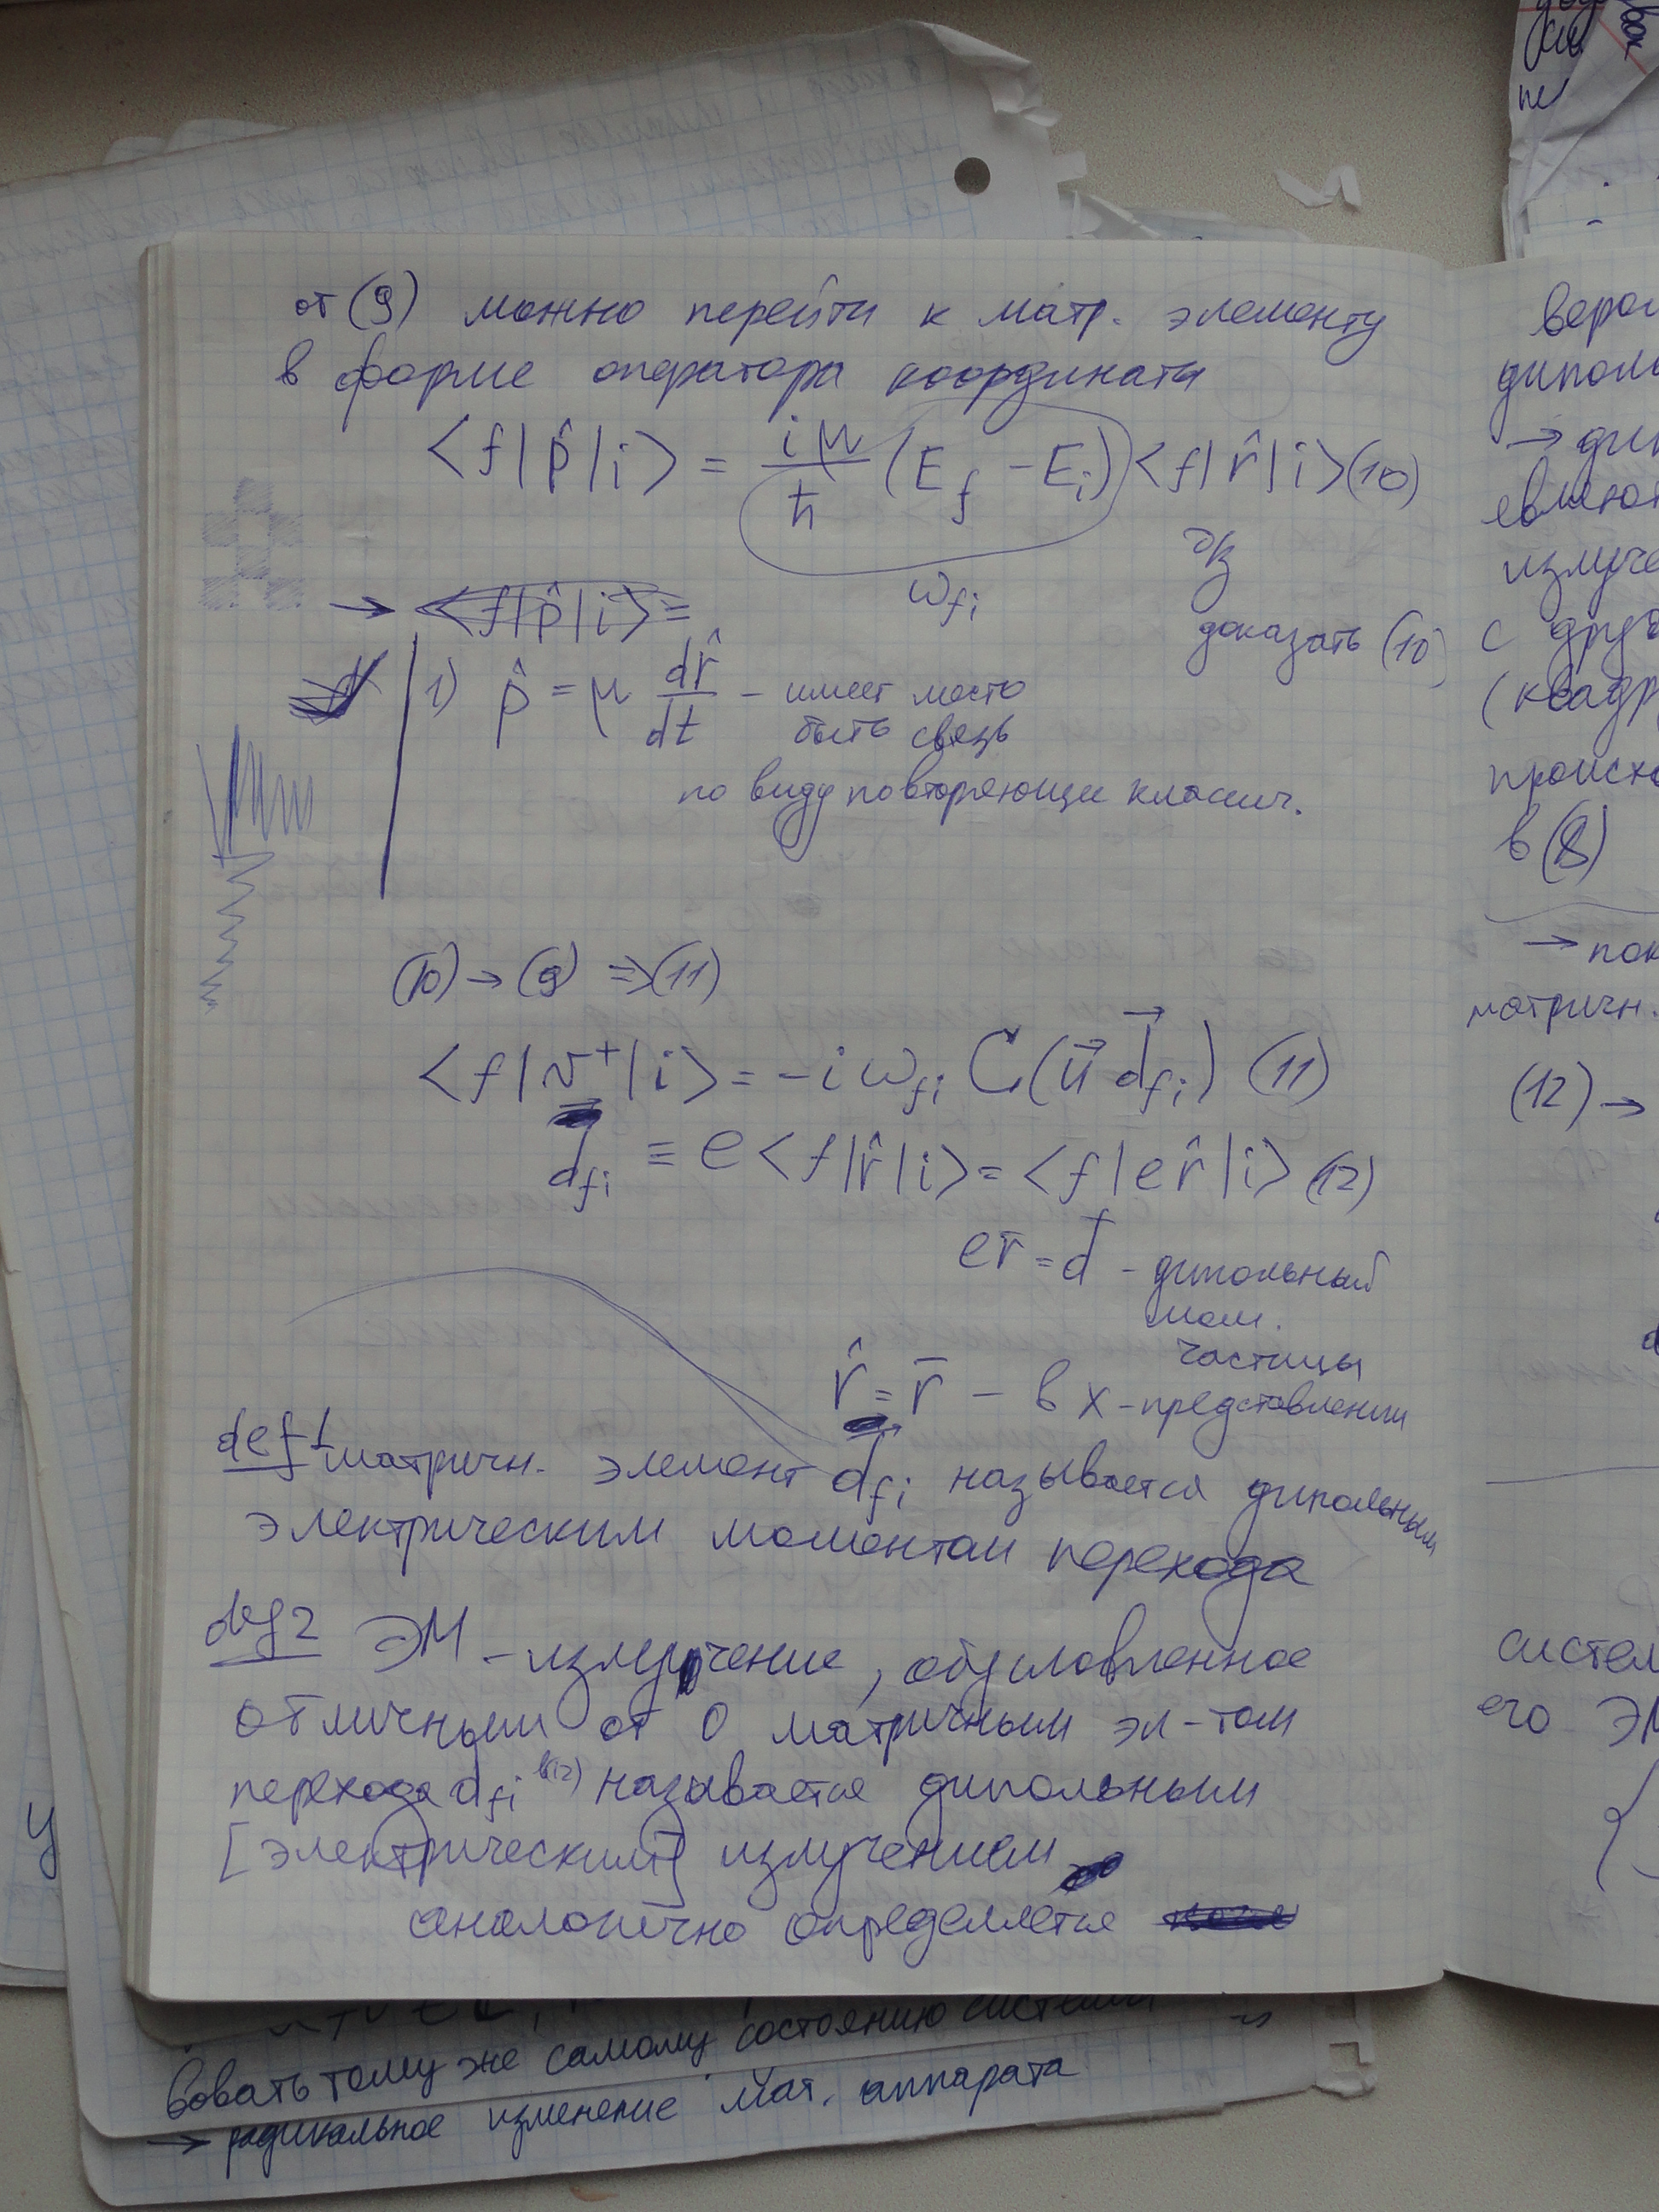 от (9) можно перейти к матр. элементу
в форме оператора координаты
<f|p̂|i> = iμ/ħ (E_f - E_i) <f|r̂|i> (10)
ω_fi
дз
доказать (10)
→ <f|p̂|i> =
1) p̂ = μ dr̂/dt - имеет место
быть связь
по виду повторяющие классич.
(10) → (9) => (11)
<f|v⁺|i> = -iω_fi C (u⃗ d⃗_fi) (11)
d⃗_fi ≡ e<f|r̂|i> = <f|er̂|i> (12)
er̄ = d̄ - дипольный
мом.
частицы
r̂ = r̄ - в x-представлении
def1 матричн. элемент d⃗_fi называется дипольным
электрическим моментом перехода
def2 ЭМ-излучение, обусловленное
отличным от 0 матричным эл-том
перехода d_fi в(12) называется дипольным
[электрическим] излучением
аналогично определяется
верои
диполь
→ дип
излуче
с друг
(квадр
происхо
в (8)
→ пок
матричн.
(12) →
систем
его ЭМ
У
вовать тому же самому состоянию системы
→ радикальное изменение мат. аппарата